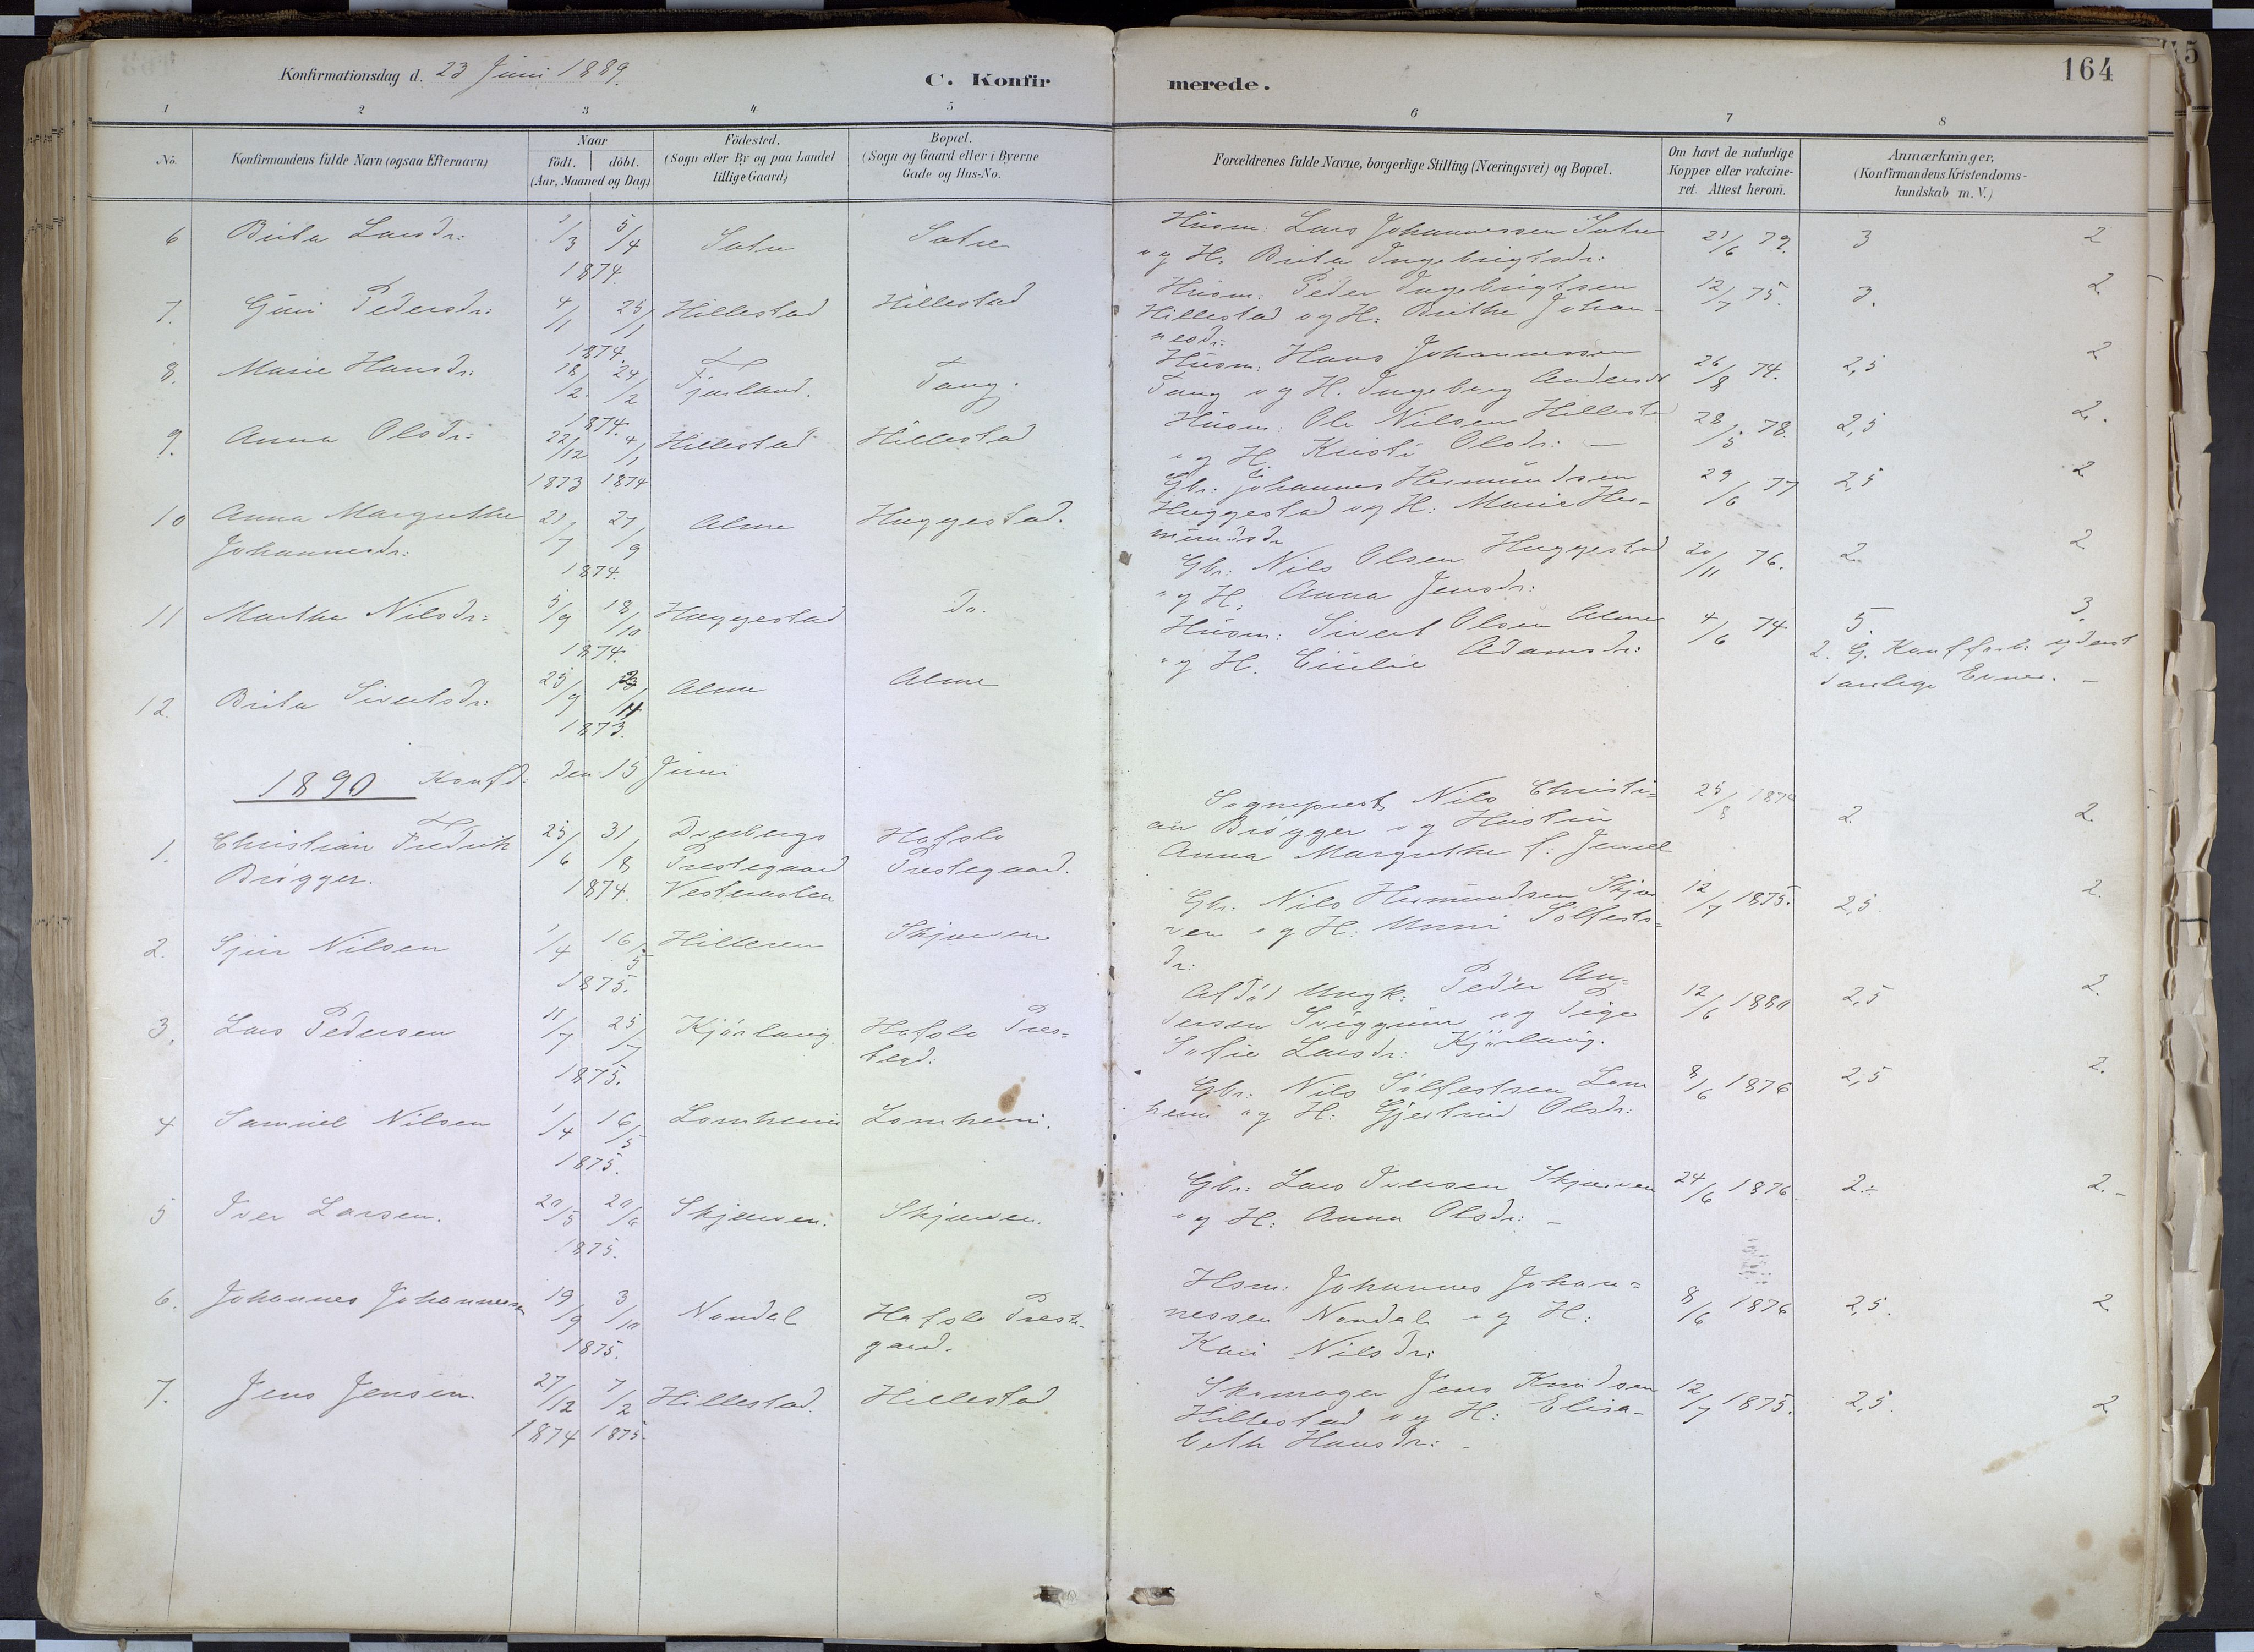 164
Konfirmationsdag d. 23 Juni 1889.
C. Konfirmerede.
1 2 3 4 5 6 7 8
No.
Konfirmandens fulde Navn (ogsaa Efternavn)
Naar
födt. döbt.
(Aar, Maaned og Dag)
Födested.
(Sogn eller By og paa Landet
tillige Gaard)
Bopæl.
(Sogn og Gaard eller i Byerne
Gade og Hus-No.
Forældrenes fulde Navne, borgerlige Stilling (Næringsvei) og Bopæl.
Om havt de naturlige
Kopper eller vakcine-
ret. Attest herom.
Anmærkninger,
(Konfirmandens Kristendoms-
kundskab m. V.)
6 Brita Larsdr: 1/3 5/4 Satre Satre Husm: Lars Johannessen Satre 21/6 79. 3 2
1874. og H. Brita Ingebrigtsdr:
7. Guri Pedersdr: 4/1 25/1 Hillestad Hillestad Husm: Peder Ingebrigtsen 12/7 75. 3. 2
1874. Hillestad og H: Brithe Johan-
nesdr:
8. Marie Hansdr: 18/2 24/2 Fjærland. Tang. Husm: Hans Johannessen 26/8 74. 2,5 2
1874. Tang og H. Ingeborg Andersdr
9. Anna Olsdr: 22/12 4/1 Hillestad Hillestad Husm: Ole Nilsen Hillestad 28/5 78. 2,5 2.
1873 1874 og H. Kristi Olsdr: –
10 Anna Margrethe 21/7 27/9 Alme Huggestad. Gbr: Johannes Hermundsen 29/6 77 2,5 2
Johannesdr: 1874. Huggestad og H: Marie Her-
mundsdr
11 Martha Nilsdr: 5/9 18/10 Huggestad Do. Gbr: Nils Olsen Huggestad 20/11 76. 2. 2
1874. og H. Anna Jensdr:
12. Brita Sivertsdr: 25/9 /11 Alme Alme Husm: Sivert Olsen Alme 4/6 74 5 3.
1873. og H. Adamsdr: 2. G. Konf
Evner. –
1890 Konfd: den 15 Juni
1. Christian Fredrik 25/6 31/8 Dverbergs Hafslo Sogneprest Nils Christi= 25/8 1874 2 2.
Brøgger. 1874. Prestegaard Prestegaard. an Brøgger og Hustru
Vesteraalen Anna Margrethe f. Jenvell
2. Sjur Nilsen 1/4 16/5 Hilleren Skjærven Gbr: Nils Hermundsen Skjær 12/7 1875. 2,5. 2.
1875. ven og H: Unni Sølfests-
dr:
3. Lars Pedersen 11/7 25/7 Kjörlaug. Hafslo Pres= Afdød Ungk: Peder An= 12/6 1880 2,5 2.
1875. tegd: dersen Sviggum og Pige
Sofie Larsdr: Kjörlaug.
4 Samuel Nilsen 1/4 16/5 Lomheim Lomheim. Gbr: Nils Sølfestsen Lom 8/6 1876 2,5 2.
1875. heim og H: Gjertrud Olsdr:
5 Iver Larsen. 20/5 20/6 Skjærven. Skjærven. Gbr: Lars Iversen Skjærven 24/6 1876. 2.÷ 2.-
1875. og H: Anna Olsdr: –
6. Johannes Johannessen 19/9 3/10 Nondal Hafslo Prest- Hsm: Johannes Johan= 8/6 1876 2,5. 2
1875. gaard. nessen Nondal og H:
Kari Nilsdr:
7. Jens Jensen. 27/12 7/2 Hillestad. Hillestad Skomager Jens Knudsen 12/7 1875. 2,5. 2
1874 1875. Hillestad og H: Elisa-
beth Hansdr: –